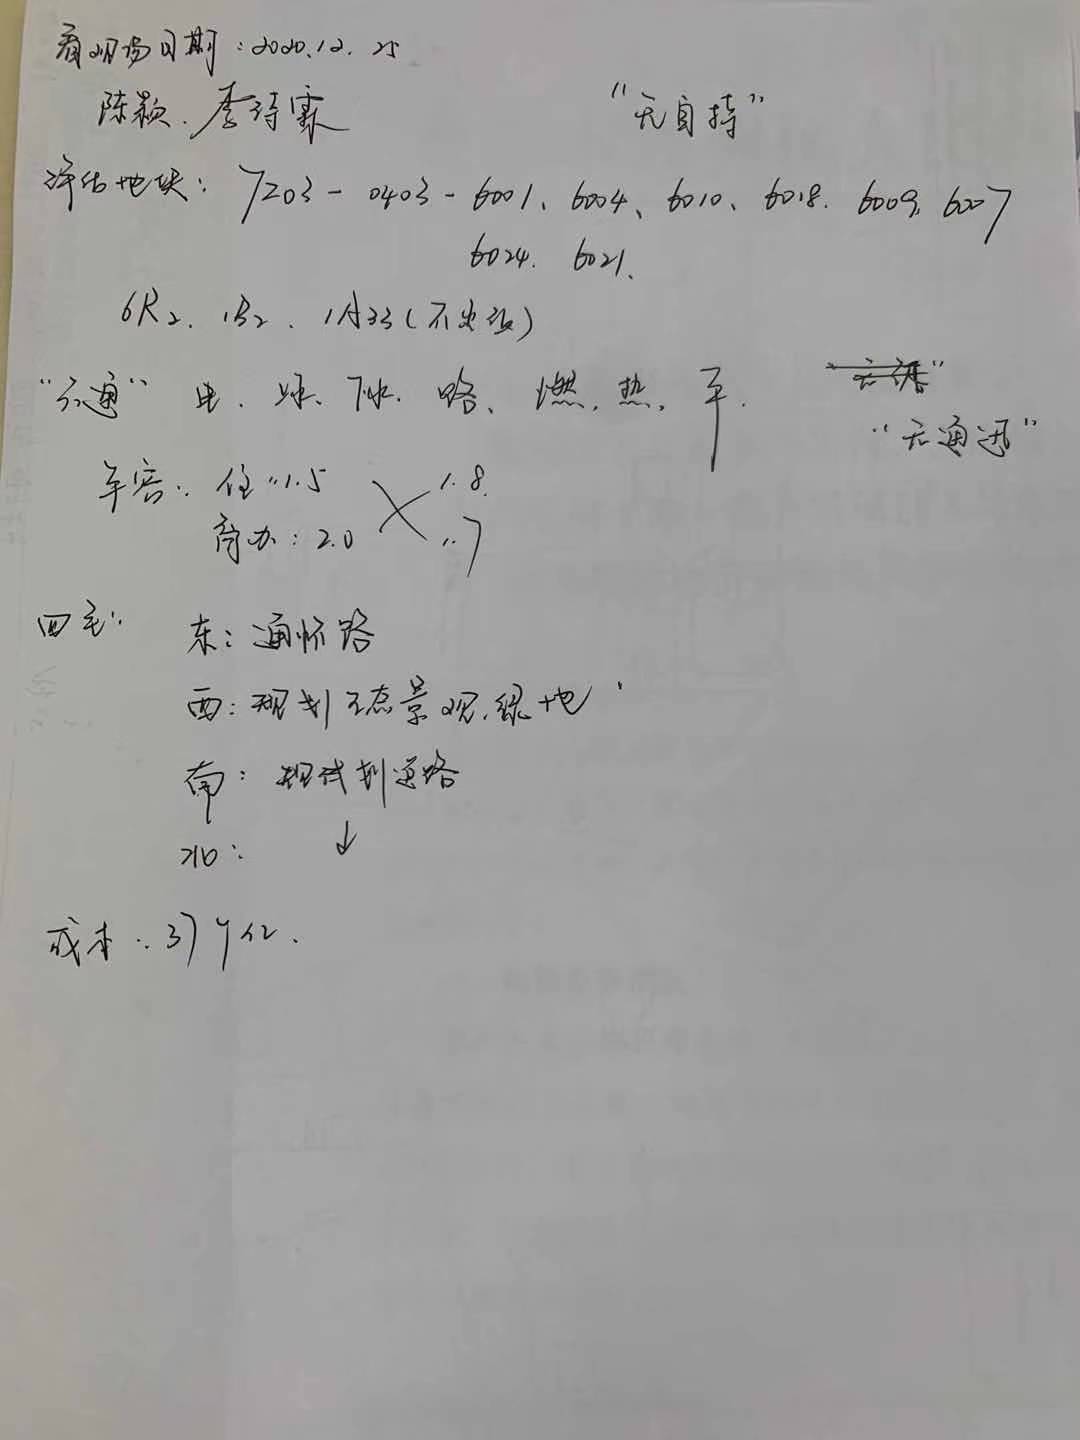 看现场日期：2020.12.25
陈颖、李诗霖 “无自持”
评估地块：7203-0403-6001、6004、6010、6018、6009、6007
6024、6021、
6R2、1B2、1A33(不出让)
“六通” 电、上水、下水、路、燃、热、平、
“无通讯”
平容：住：1.5 1.8
商办：2.0 1.7
四至：
东：通怀路
西：规划生态景观绿地
南：规划道路
北： ↓
成本：37亿.